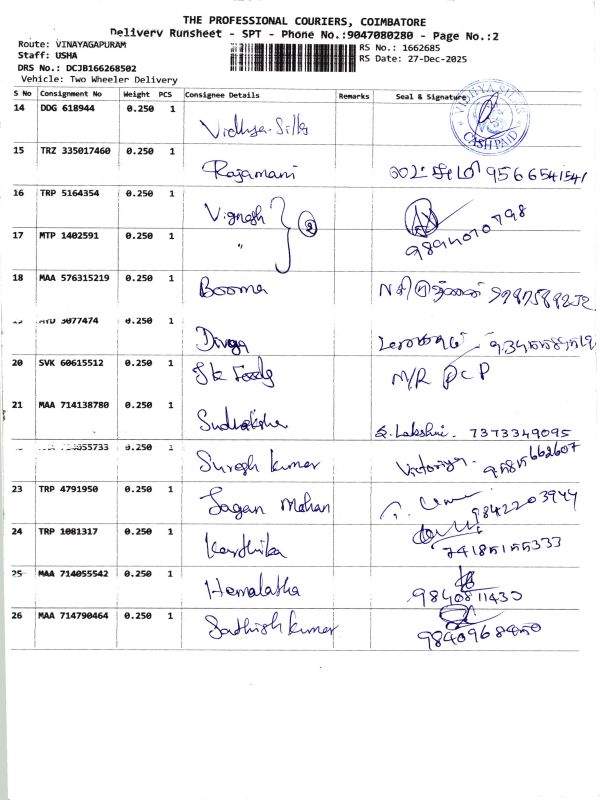 THE PROFESSIONAL COURIERS, COIMBATORE
Delivery Runsheet - SPT - Phone No.:9047080280 - Page No.:2
Route: VINAYAGAPURAM
Staff: USHA
DRS No.: DCJB166268502
Vehicle: Two Wheeler Delivery
RS No.: 1662685
RS Date: 27-Dec-2025
S No Consignment No Weight PCS Consignee Details Remarks Seal & Signature
14 DDG 618944 0.250 1 Vidhya Silks CASH PAID
15 TRZ 335017460 0.250 1 Rajamani 9566541541
16 TRP 5164354 0.250 1 Vignesh
17 MTP 1402591 0.250 1 " 2 9894070798
18 MAA 576315219 0.250 1 Booma
3077474 0.250 1 Durga
20 SVK 60615512 0.250 1 Sk Foods M/R PCP
21 MAA 714138780 0.250 1 Sudhaksha S. Lakshmi. 7373349095
0.250 1 Suresh kumar Victoriya. 9585662607
23 TRP 4791950 0.250 1 Jagan Mohan 9842203944
24 TRP 1081317 0.250 1 Karthika 74185155333
25 MAA 714055542 0.250 1 Hemalatha 9840811433
26 MAA 714790464 0.250 1 Sathish kumar